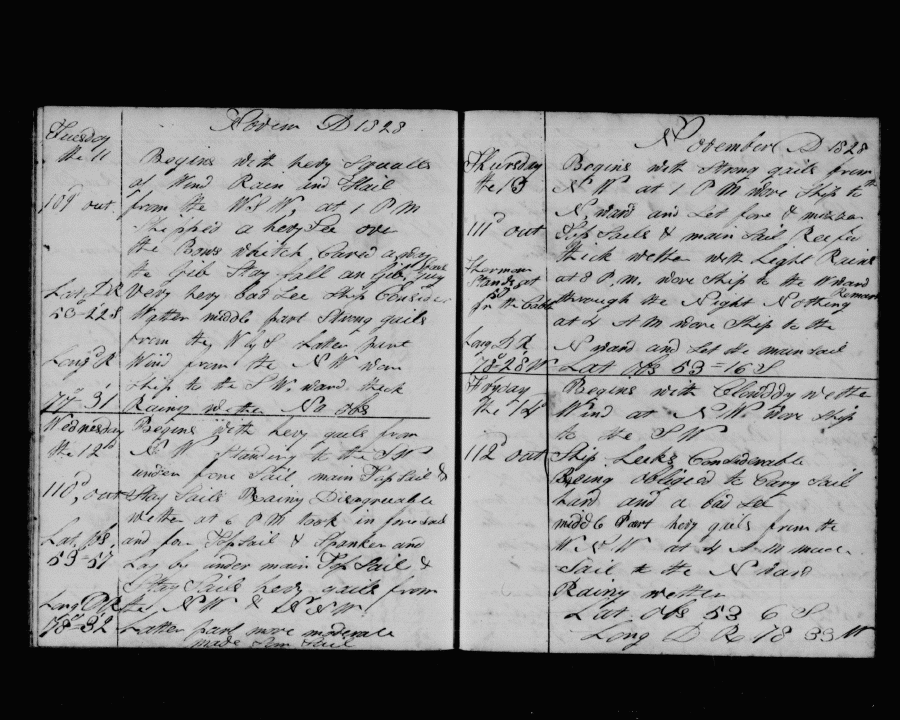 Novem D 1828
Tuesday
the 11
109 out
Lat DR
53-22S
Long D R
31
Begins with hevy Squalls
of Wind Rain and Hail
from the W S W, at 1 P M
Shipped a hevy See ove
the Bows whitch Cared away
the Gib Stay fall an Gib Guy
Very hevy bad See Ship
Wether middle part Strong gails
from the W S Latter part
Wind from the N W wore
Ship to the S W. ward thick
Rainy wether No obs
Wednesday
the 12
110 out
Lat, obs
53=57
Long D R
78=32
Begins with hevy gails from
N W Standing to the S W
under fore Sail, main Top Sail &
Stay Sails Rainy Disagreeable
wether at 6 P M took in fore Sail
and fore Top Sail & Spanker and
Lay by under main Top Sail &
Stay Sails hevy gails from
the N W & W N W
Latter part more moderate
made Sum Sail
November D 1828
Thursday
the 13
111 out
Sherman
Stands at
the Cable
Long D R
78=28 W
Begins with Strong gails from
N W at 1 P M wore Ship to the
N, ward and Let fore & mizen
Top Sails & main Sail Reefed
thick wether with Light Rains
at 8 P, M. wore Ship to the W ward
through the Night Nothing Remark
at 4 A M wore Ship to the
N ward and Set the main sail
Lat obs 53=16 S
Fryday
the 14
112 out
Begins with Clouddy wethe
Wind at N W. wore Ship
to the S W
Ship Leeks Considerable
Being obliged to Cary Sail
hard and a bad See
middle Part hevy gails from the
W N W at 4 A M made
Sail to the N ward
Rainy wether
Lat obs 53 6 S
Long D R 78 33 W